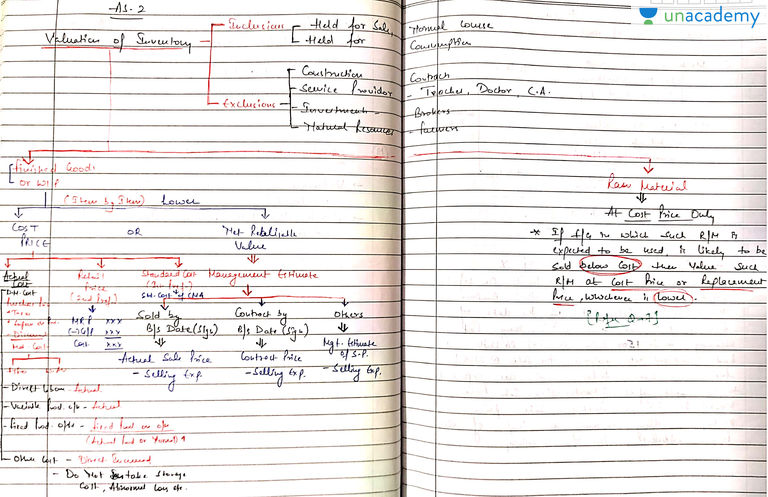 AS-2
unacademy
Valuation of Inventory
Inclusions
Held for Sale, Normal Course
Held for Consumption
Exclusions
Construction Contract
Service Provider - Teacher, Doctor, C.A.
Investment - Brokers
Natural Resources - farmers
Finished Goods
or WIP
(Item by Item) Lower
COST
PRICE
OR
Net Realisable
Value
Actual
Cost
Retail
Price
(2nd Pref)
MRP xxx
(-) G/P xxx
Cost xxx
Standard Cost
Std. Cost of CMA
DM Cost
Purchase
+ Taxes
- Discount
Net Cost
- Direct Labour - Actual
- Variable Prod. o/h - Actual
- Fixed Prod. o/Hs - Fixed Prod. o/h
(Actual Prod or Normal) ↑
- Other Cost - Direct Incurred
- Do Not take storage
Cost, Abnormal Loss etc.
Management Estimate
Sold by
B/S Date (Sign)
Actual Sale Price
- Selling Exp.
Contract by
B/S Date (Sign)
Contract Price
- Selling Exp.
Others
Mgt. Estimate
of S.P.
- Selling Exp.
Raw Material
At Cost Price Only
* If f/g in which such R/M is
expected to be used, is likely to be
sold below Cost then Value such
R/M at Cost Price or Replacement
Price, whichever is lower.